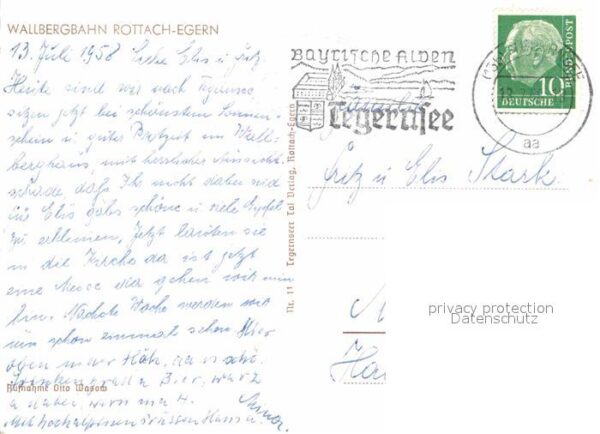 WALLBERGBAHN ROTTACH-EGERN
13. Juli 1958 Liebe Elis u. Fritz
Heute sind wir nach Tegernsee
sitzen jetzt bei schönstem Sonnen-
schein u. guter Brotzeit im Wall-
berghaus, mit herrlicher Aussicht.
schade daß Ihr nicht dabei seid
für Elis gäbs schöne u viele Gipfel
zu erklimmen, Jetzt läuten sie
in die Kirche da ist jetzt
eine Messe da gehen wir nun
hin. Nächste Woche werden wir
uns schon einmal sehen Hier
oben in der Höh, da is schö
Bier,
Mit
Aufnahme Otto Wasow
Nr. 11 Tegernseer Tal Verlag, Rottach-Egern
Bayrische Alpen
Tegernsee
aa
10
DEUTSCHE
BUNDESPOST
Familie
Fritz u Elis Stark
M
Ha
privacy protection
Datenschutz